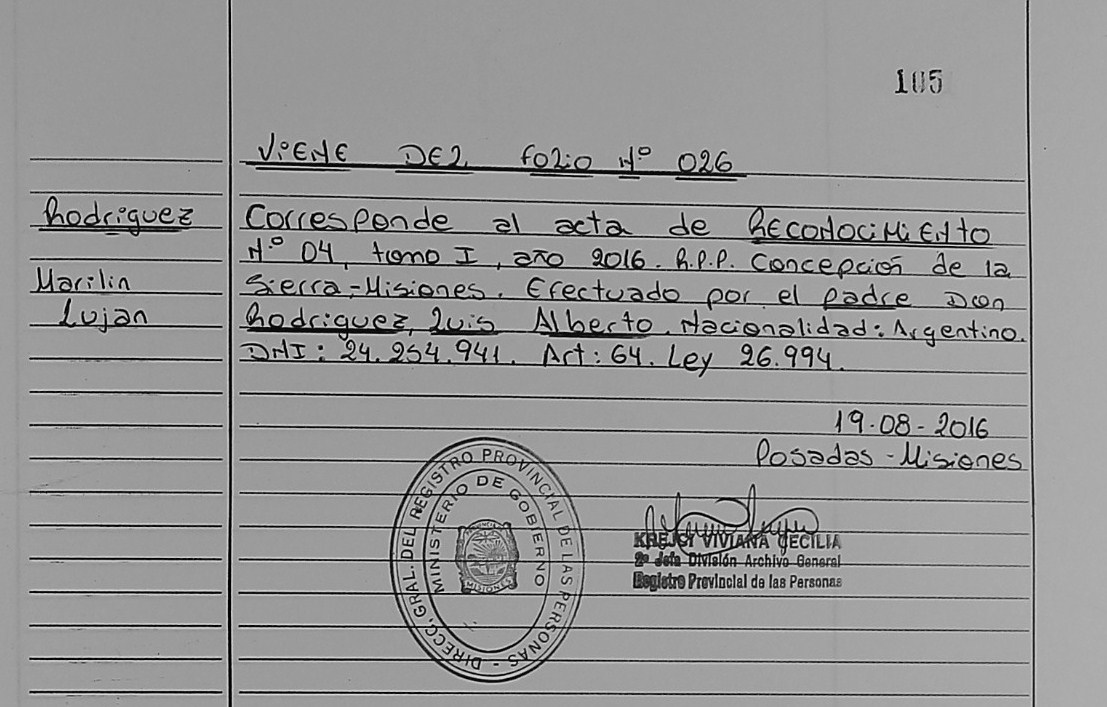 105
VIENE DEL FOLIO Nº 026
Rodriguez
Marilin
Lujan
Corresponde al acta de RECONOCIMIENTO
Nº 04, tomo I, año 2016. R.P.P. Concepción de la
Sierra-Misiones. Efectuado por el padre Don
Rodriguez, Luis Alberto. Nacionalidad: Argentino.
DNI: 24.254.941. Art: 64. Ley 26.994.
19-08-2016
Posadas-Misiones
DIRECC. GRAL. DEL REGISTRO PROVINCIAL DE LAS PERSONAS -
MINISTERIO DE GOBIERNO
MISIONES
KREJCI VIVIANA CECILIA
2º Jefa División Archivo General
Registro Provincial de las Personas